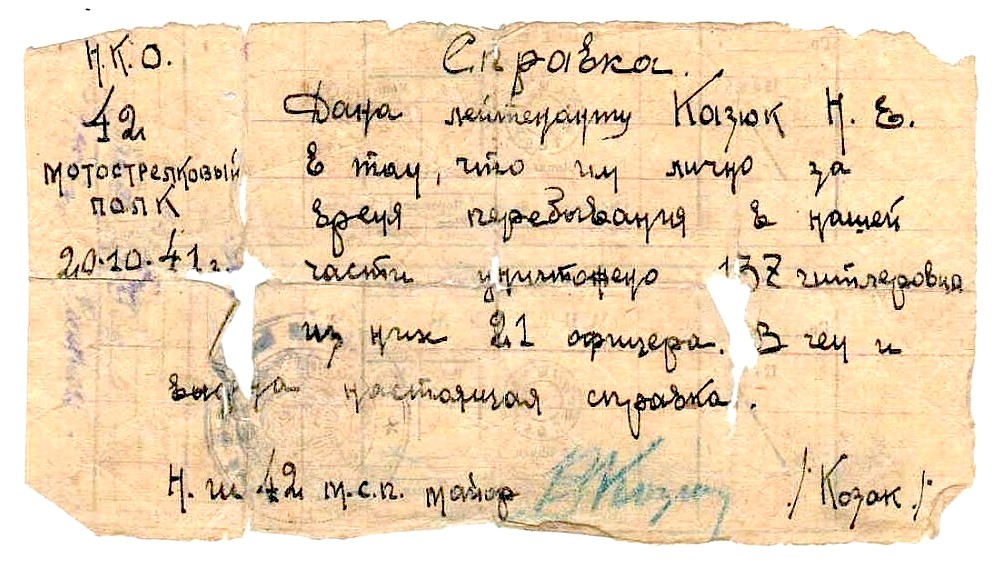 Н.К.О.
42
мотострелковый
полк
20.10.41 г.
Справка.
Дана лейтенанту Казюк Н. Е.
в том, что им лично за
время перебывания в нашей
части уничтожено 137 гитлеровца
из них 21 офицера. В чем и
выдана настоящая справка.
Н. ш 42 м.с.п. майор /Козак./